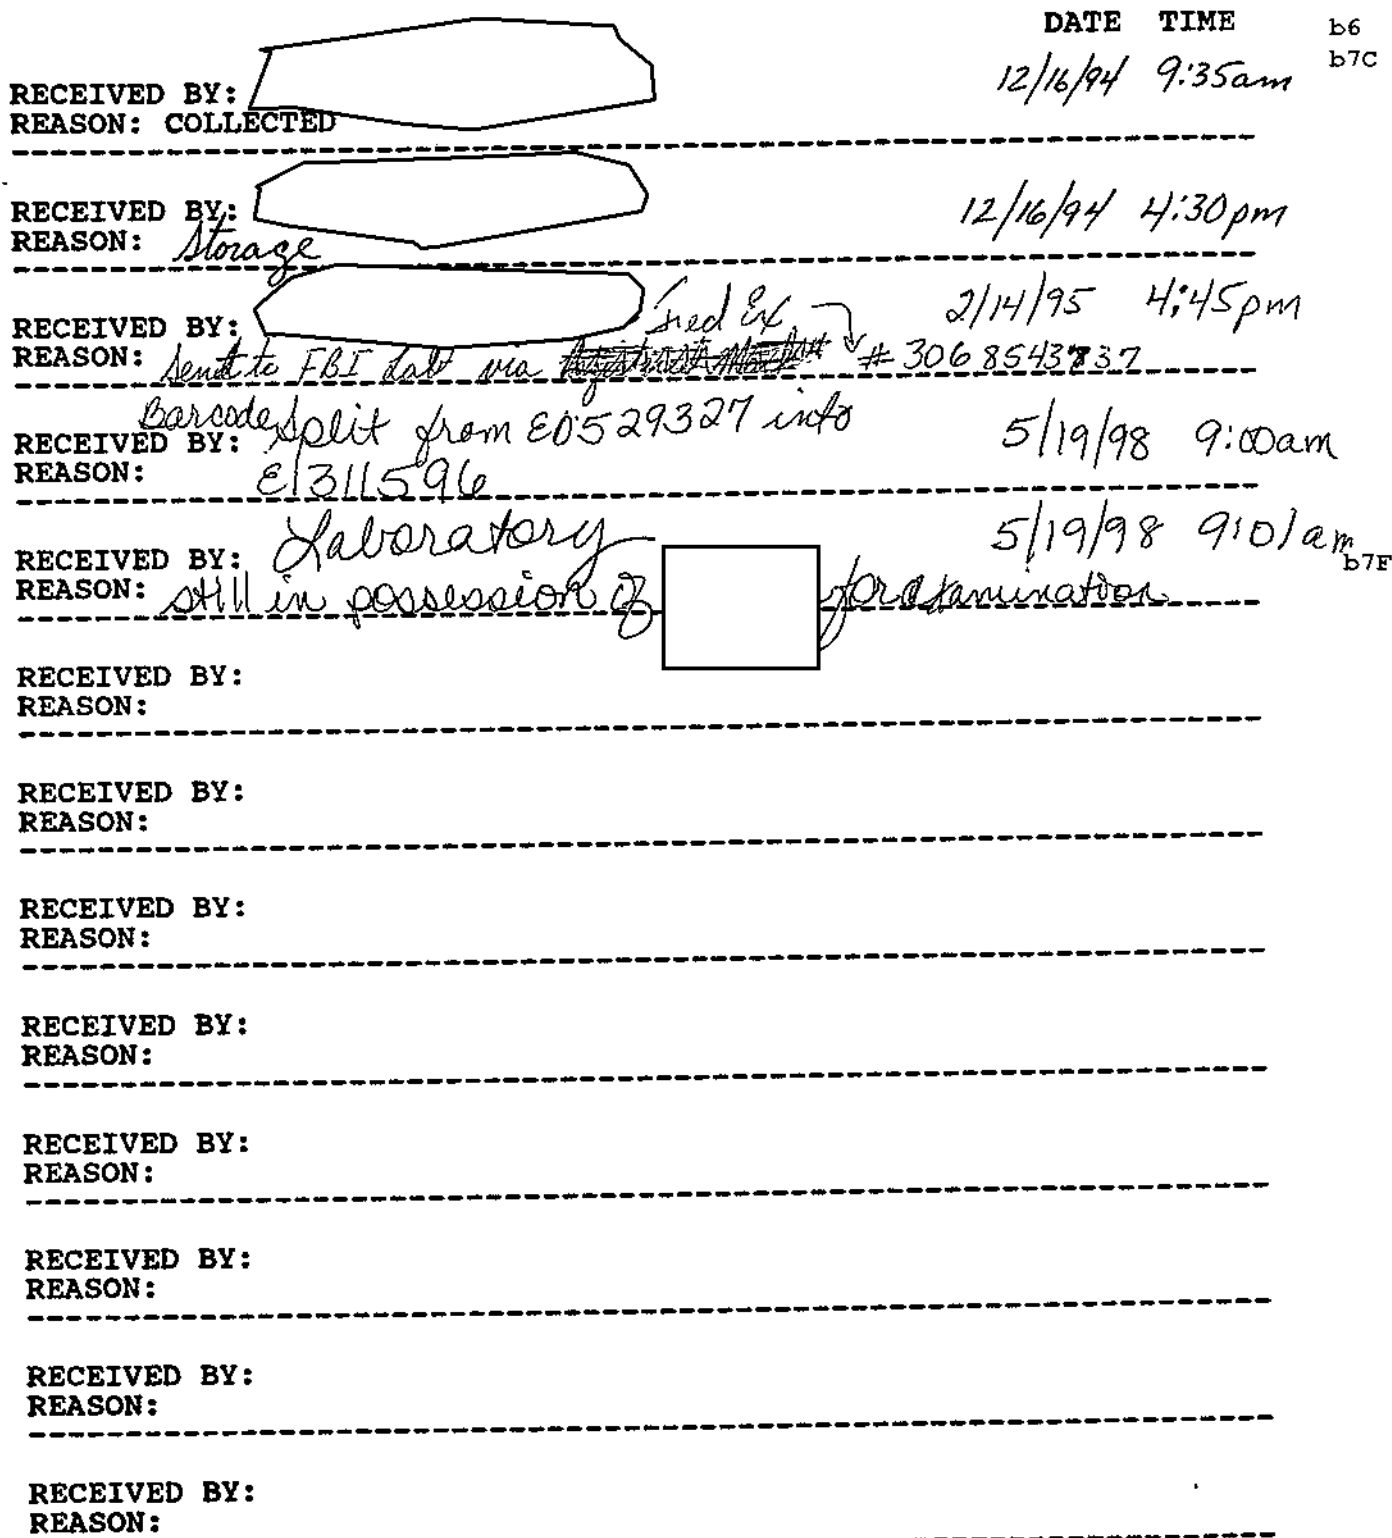 DATE TIME b6
b7C
12/16/94 9:35am
RECEIVED BY:
REASON: COLLECTED
RECEIVED BY: 12/16/94 4:30pm
REASON: Storage
Fed Ex 2/14/95 4:45pm
RECEIVED BY:
REASON: Sent to FBI Lab via # 3068543737
Barcode split from E0529327 into
RECEIVED BY: 5/19/98 9:00am
REASON: E1311596
RECEIVED BY: Laboratory 5/19/98 9:01am
b7F
REASON: still in possession of for examination
RECEIVED BY:
REASON:
RECEIVED BY:
REASON:
RECEIVED BY:
REASON:
RECEIVED BY:
REASON:
RECEIVED BY:
REASON:
RECEIVED BY:
REASON:
RECEIVED BY:
REASON:
RECEIVED BY:
REASON: